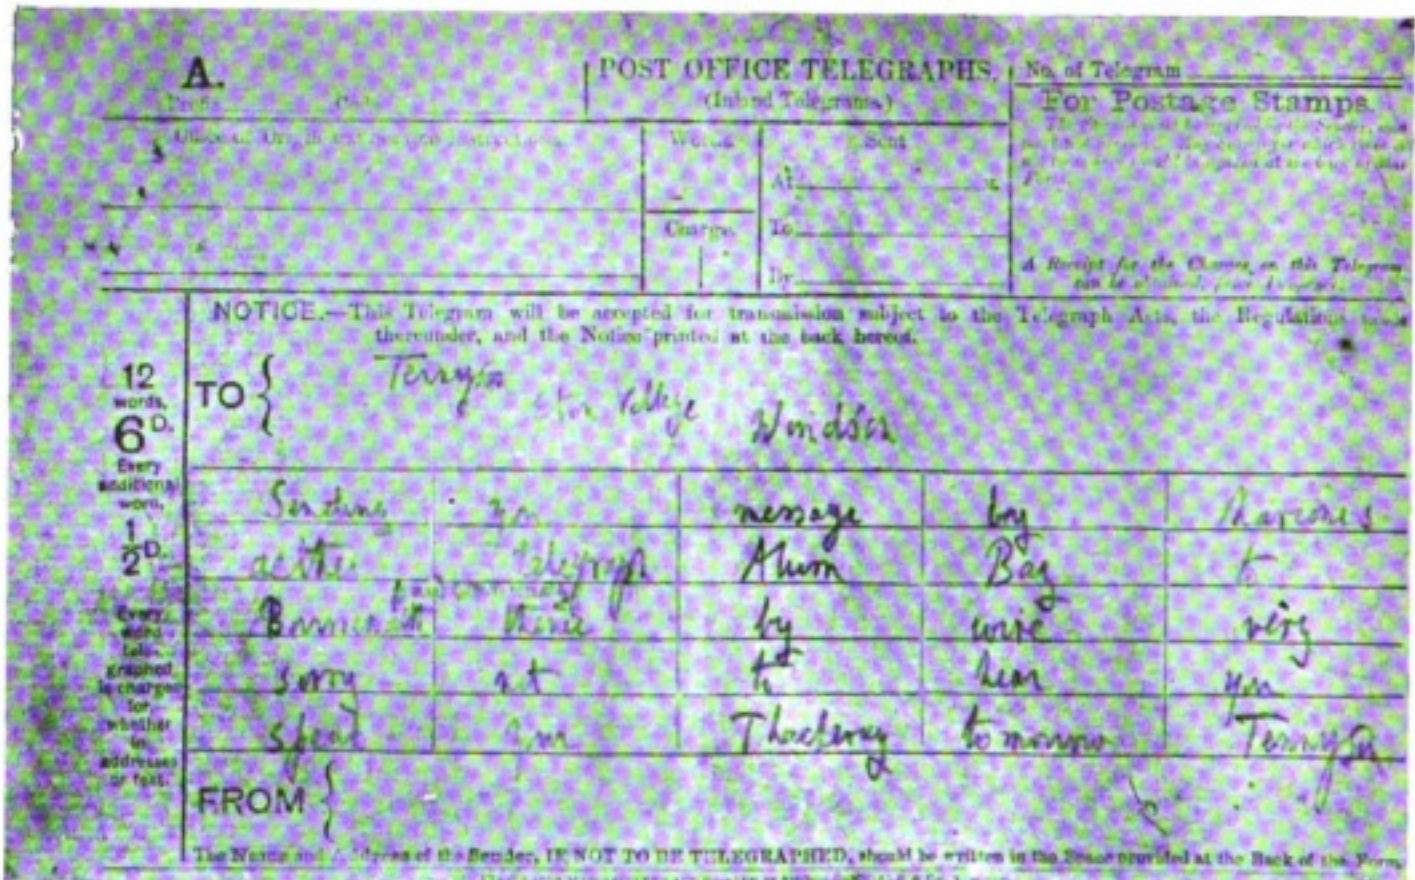 A.
POST OFFICE TELEGRAPHS.
(Inland Telegrams.)
No. of Telegram
For Postage Stamps.
Words
Sent
At
Charge.
To
By
A Receipt for the Charges on this Telegram
can be
NOTICE.—This Telegram will be accepted for transmission subject to the Telegraph Acts, the Regulations made
thereunder, and the Notice printed at the back hereof.
12 words, 6D.
Every additional word, 1/2D.
Every word telegraphed is charged for whether in addresses or text.
TO
Tennyson
Eton College Windsor
Sending you message by
aether telegraph Alum Bay to
thence by wire very
sorry not to hear you
speak your Thackeray tomorrow Tennyson
FROM
The Name and Address of the Sender, IF NOT TO BE TELEGRAPHED, should be written in the Space provided at the Back of the Form.